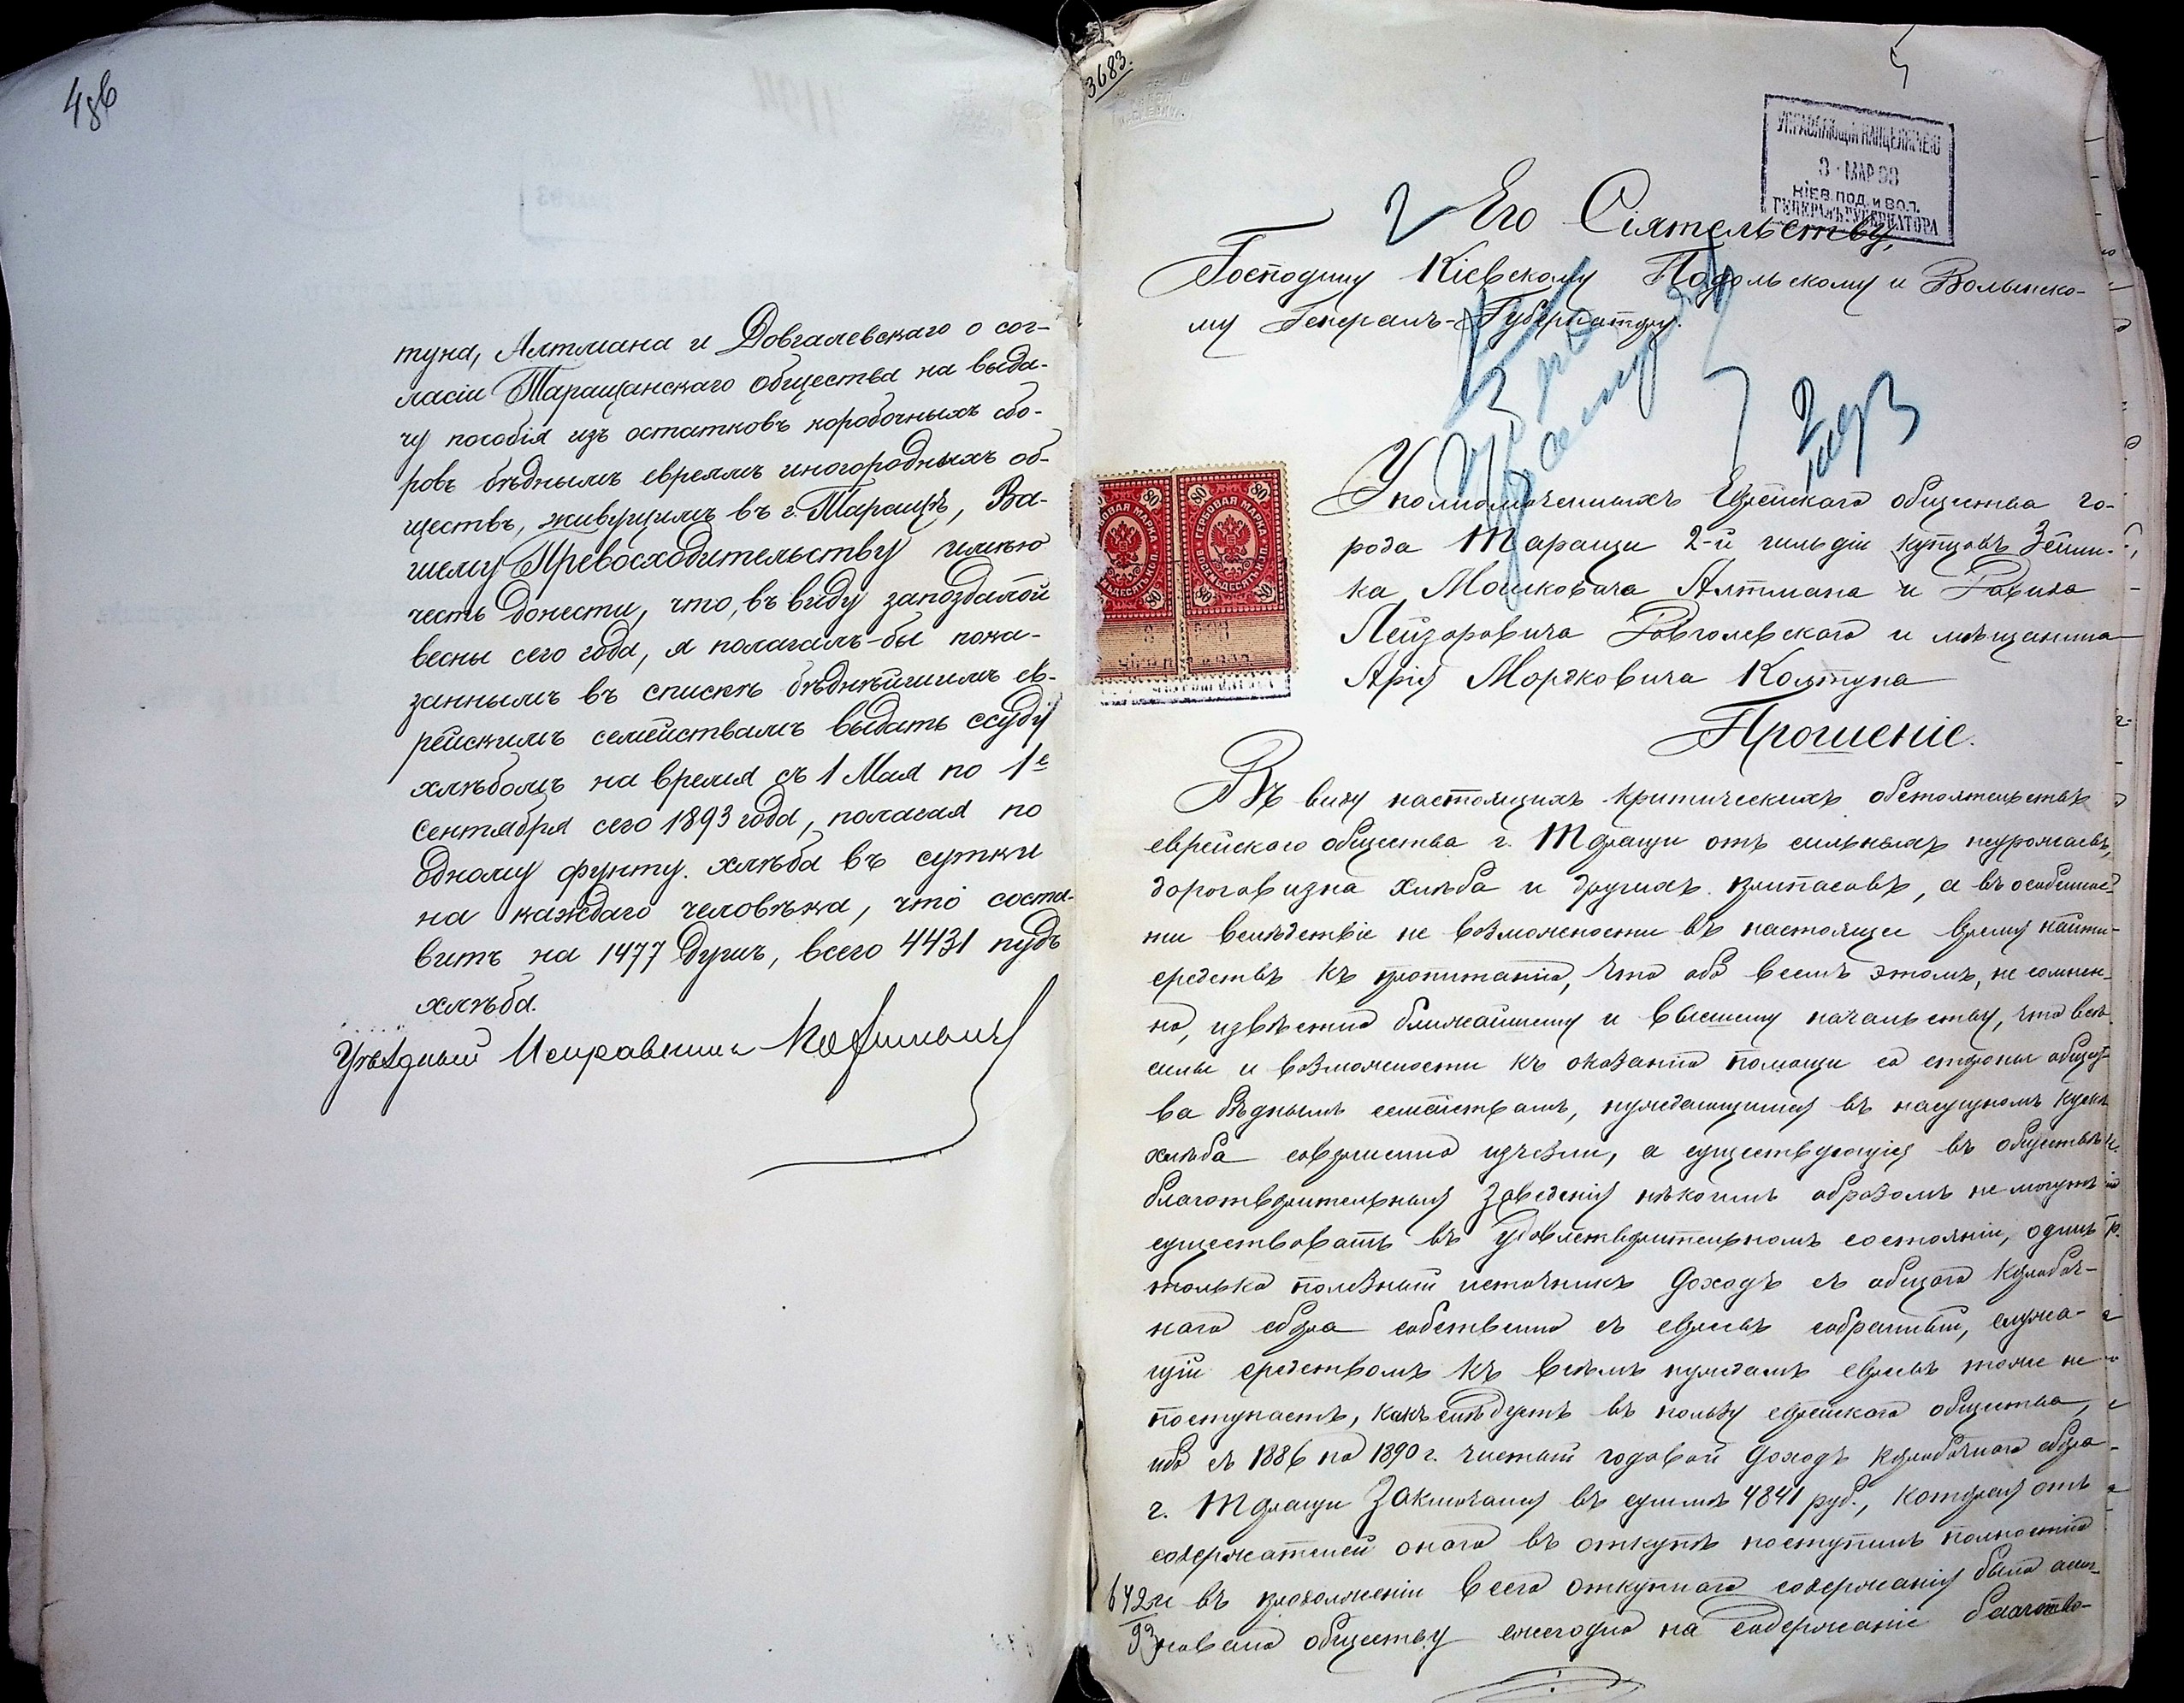 486
туна, Алтмана и Довгалевскаго о сог-
ласіи Таращанскаго общества на выда-
чу пособія изъ остатковъ коробочныхъ сбо-
ровъ бѣднымъ евреямъ иногородныхъ об-
ществъ, живущимъ въ г. Таращѣ, Ва-
шему Превосходительству имѣю
честь донести, что, въ виду запоздалой
весны сего года, я полагалъ-бы пока-
заннымъ въ спискѣ бѣднѣйшимъ ев-
рейскимъ семействамъ выдать ссуду
хлѣбомъ на время съ 1 Мая по 1е
Сентября сего 1893 года, полагая по
одному фунту хлѣба въ сутки
на каждаго человѣка, что соста-
витъ на 1477 душъ, всего 4431 пудъ
хлѣба.
Уѣздный Исправникъ
3683.
5
УПРАВЛЯЮЩІЙ КАНЦЕЛЯРІЕЮ
3 МАР 93
КІЕВ. ПОД. И ВОЛ.
ГЕНЕРАЛЪ ГУБЕРНАТОРА
Его Сіятельству,
Господину Кіевскому Подольскому и Волынско-
му Генералъ-Губернатору.
2 мар
ГЕРБОВАЯ МАРКА
80
ВОСЕМЬДЕСЯТЪ КОП.
ГЕРБОВАЯ МАРКА
80
ВОСЕМЬДЕСЯТЪ КОП.
Уполномоченныхъ Еврейскаго общества го-
рода Таращи 2-й гильдіи купцовъ Зейли-
ка Мошковича Алтмана и Рахиля
Лейзоровича Довголевскаго и мѣщанина
Арія Мордковича Колтуна
Прошеніе.
Въ виду настоящихъ критическихъ обстоятельствъ
еврейскаго общества г. Таращи отъ сильныхъ неурожаевъ,
дороговизна хлѣба и другихъ припасовъ, а въ особеннос-
ти вслѣдствіе не возможности въ настоящее время найти
средствъ къ пропитанію, что обо всемъ этомъ, не сомнен-
но, извѣстно ближайшему и высшему начальству, что всѣ
силы и возможности къ оказанію помощи со стороны общест-
ва бѣднымъ семействамъ, нуждающимся въ насущномъ кускѣ
хлѣба совершенно изчезли, а существующія въ обществѣ
благотворительныя заведенія нѣкоимъ образомъ не могутъ
существовать въ удовлетворительномъ состояніи, одинъ
только полезный источникъ доходъ съ общаго коробоч-
наго сбора собственно съ евреевъ собранный, служа-
щій средствомъ къ всѣмъ нуждамъ евреевъ тоже не
поступаетъ, какъ слѣдуетъ въ пользу еврейскаго общества,
ибо съ 1886 по 1890 г. чистый годовой доходъ коробочнаго сбора
г. Таращи заключался въ суммѣ 4841 руб., который отъ
содержателей онаго въ откупъ поступилъ полностію
и въ продолженіи всего откупнаго содержанія было асиг-
новано обществу ежегодно на содержаніе благотво-
642
93